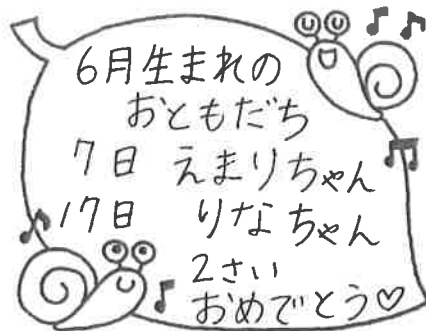 6月生まれの
おともだち
7日 えまりちゃん
17日 りなちゃん
2さい
おめでとう♡